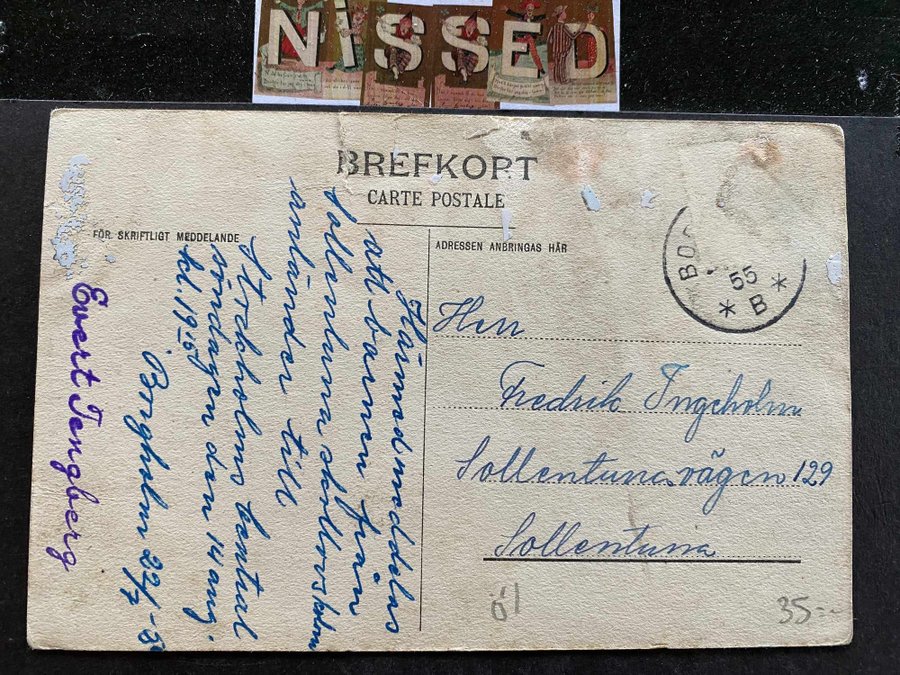 NiSSED
BREFKORT
CARTE POSTALE
FÖR SKRIFTLIGT MEDDELANDE
ADRESSEN ANBRINGAS HÄR
Härmed meddelas
att barnen från
Sollentuna skollovskoloni
anländer till
Stockholms Central
söndagen den 14 aug.
kl. 19
Borgholm 22/7
Evert Tengberg
Herr
Fredrik Ingeholm
Sollentunavägen 129
Sollentuna
55
* B *
öl
35:-